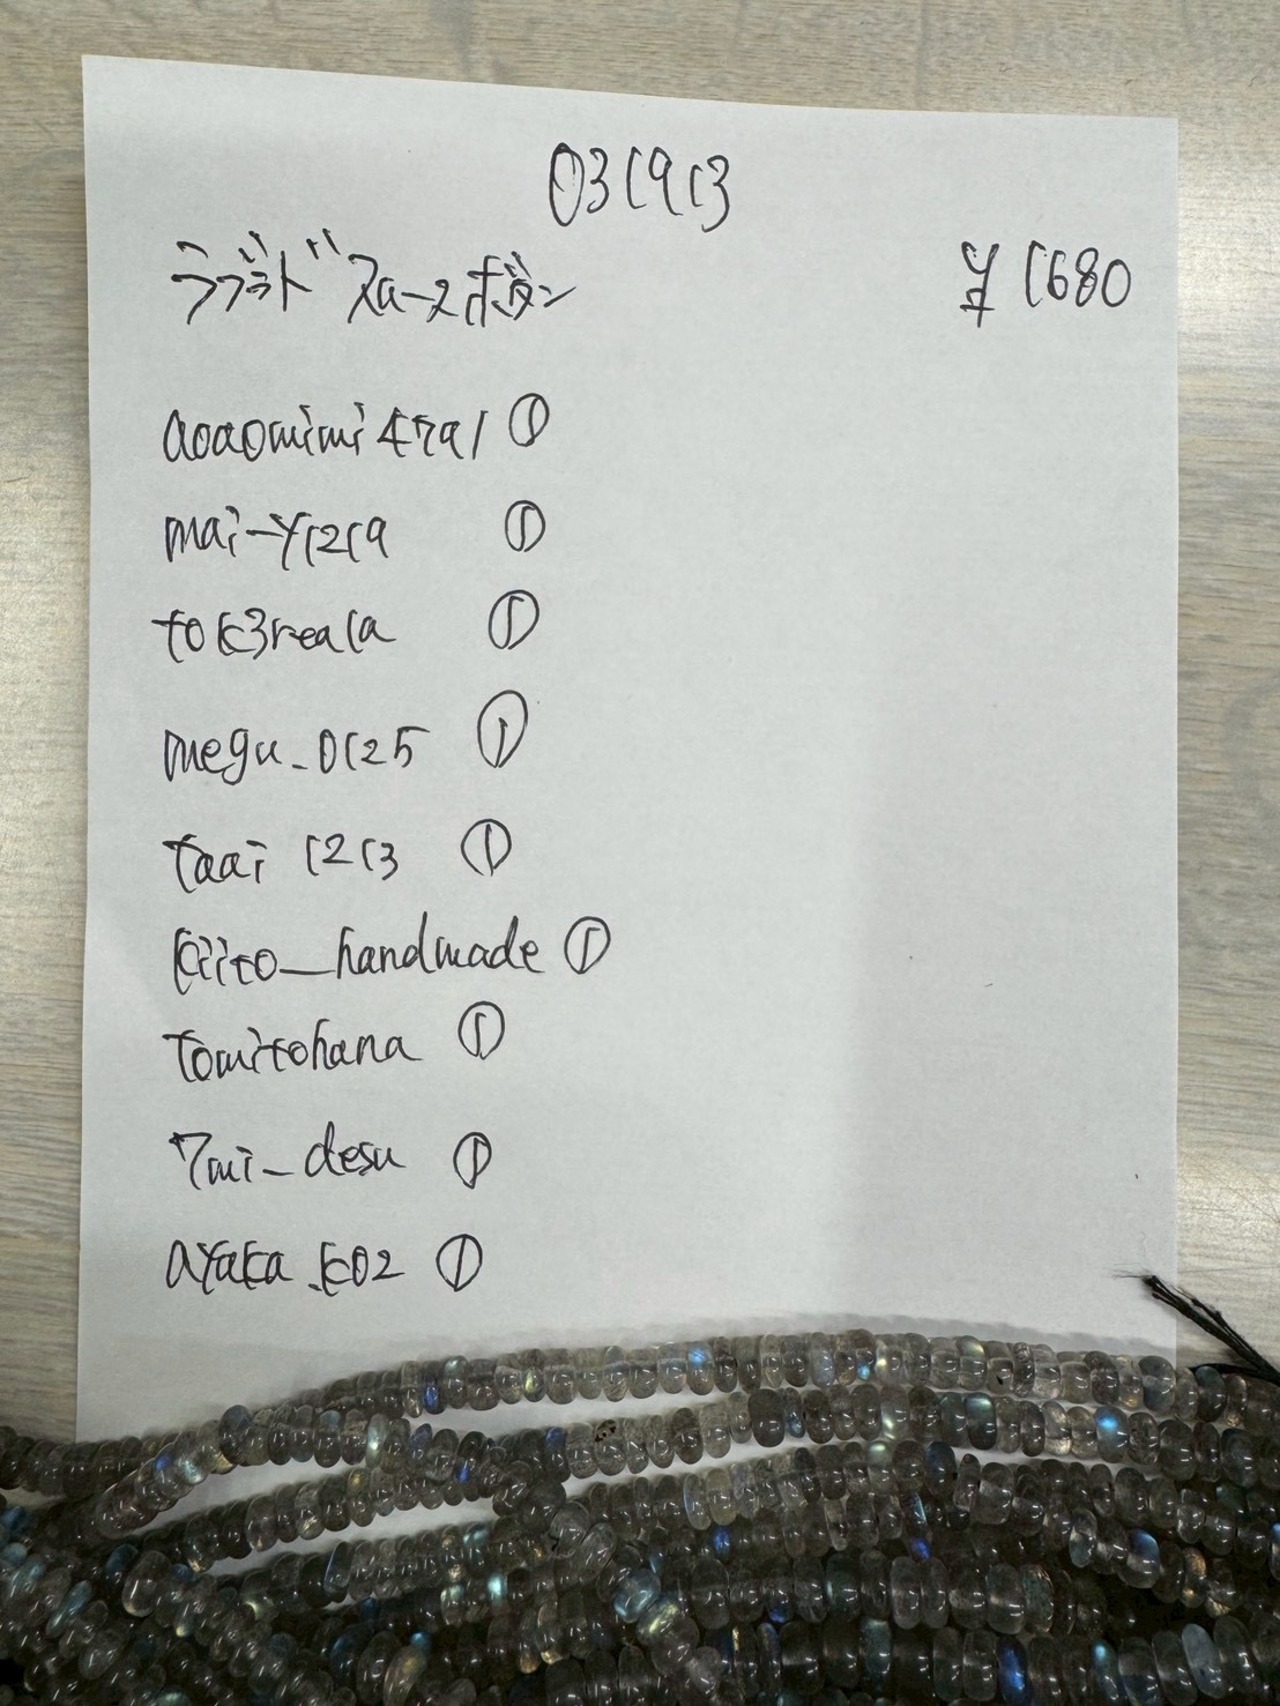 031913
ラブラド スムースボタン
¥1680
aoaomimi4791 ①
mai-y1219 ①
tok3reala ①
megu_0125 ①
taai 1213 ①
kiito_handmade ①
tomitohana ①
7mi_desu ①
ayaka_k02 ①